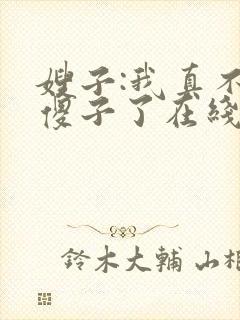 嫂子:我真不
傻子了在线
鈴木大輔 山相